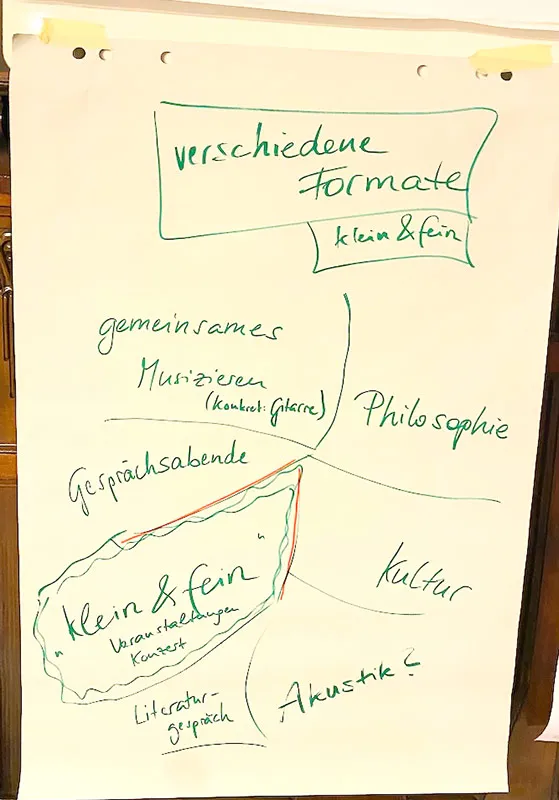 verschiedene
Formate
klein & fein
gemeinsames
Musizieren
(konkret: Gitarre)
Philosophie
Gesprächsabende
"klein & fein"
Veranstaltungen
Konzert
Kultur
Literatur-
gespräch
Akustik?